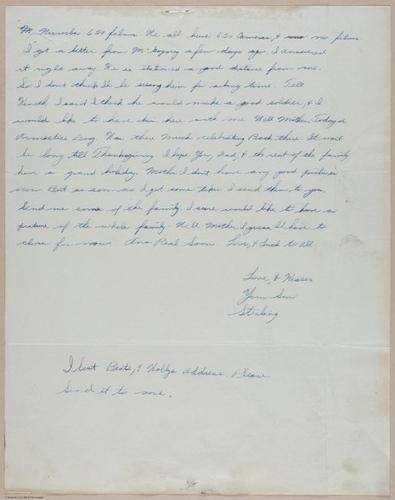 Number 620 films. We all have 620 Cameras, & no films
I got a letter from McGagny a few days ago. I answered
it right away He is stationed a good distance from me.
So I dont think Ill be seeing him for along time. Tell
Keith I said I think he would make a good soldier, & I
would like to have him here with me Well Mother Today is
Armistice Day Was there Much celebrating Back there It wont
be long till Thanksgiving I hope You, Dad, & the rest of the family
have a grand holiday. Mother I dont have any good pictures
now But as soon as I get some taken I send them to you
Send me some of the family I sure would like to have a
picture of the whole family. Well Mother I guess Ill have to
close for now Ans Real Soon Love, & Luck to All.
Love, & Kisses
Your Son
Sterling
I lost Beats, & Wallys Address. Please
Send it to me.